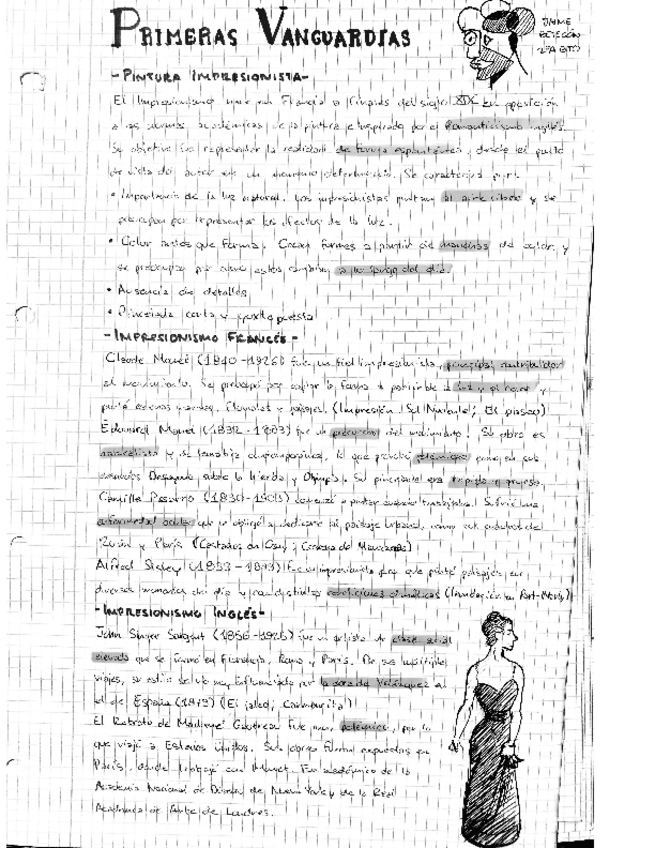 PRIMERAS VANGUARDIAS
JAIME
2ºA BTO
- PINTURA IMPRESIONISTA -
El Impresionismo en Francia a finales del siglo XIX en oposición
a las normas académicas de la pintura e inspirado por el Romanticismo inglés.
Su objetivo fue representar la realidad de forma espontánea, y desde el punto
de vista del autor en un momento determinado. Se caracteriza por:
• Importancia de la luz natural. Los impresionistas pintan al aire libre y se
preocupan por representar los efectos de la luz.
• Color antes que forma. Crean formas a partir de manchas de color, y
se preocupan por estos cambios a lo largo del día.
• Ausencia de detalles
• Pincelada corta y yuxtapuesta
- IMPRESIONISMO FRANCÉS -
Claude Monet (1840-1926) fue un fiel impresionista, principal contribuidor
al movimiento. Se preocupó por captar la forma a partir de la luz y el color y
pintó escenas y paisajes. (Impresión, Sol Naciente; El paseo)
Édouard Manet (1832-1883) fue un precursor del movimiento. Su obra es
naturalista y de temática contemporánea, lo que provocó polémica como en sus
Desayuno sobre la hierba y Olympia. Su pincelada era rápida y gruesa.
Camille Pissarro (1830-1903) comenzó a pintar Sufrió una
enfermedad ocular que le obligó a dedicarse al paisaje urbano, como sus de
Ruán y París
Alfred Sisley (1839-1899) fue un impresionista que pintó paisajes en
diversos momentos del día y con distintas condiciones climáticas (Inundación en Port-Marly)
- IMPRESIONISMO INGLÉS -
John Singer Sargent (1856-1925) fue un artista de clase social
elevada que se formó en Florencia, Roma y París. De sus múltiples
viajes, su estilo se vio muy influenciado por la obra de Velázquez en
el de España (1879) (El jaleo; Carmencita)
El Retrato de Madame Gautreau fue muy polémico, por lo
que viajó a Estados Unidos. Sus obras fueron expuestas en
París, donde trabajó con Monet. Fue académico de la
Academia Nacional de Dibujo de Nueva York y de la Real
Academia de Arte de Londres.